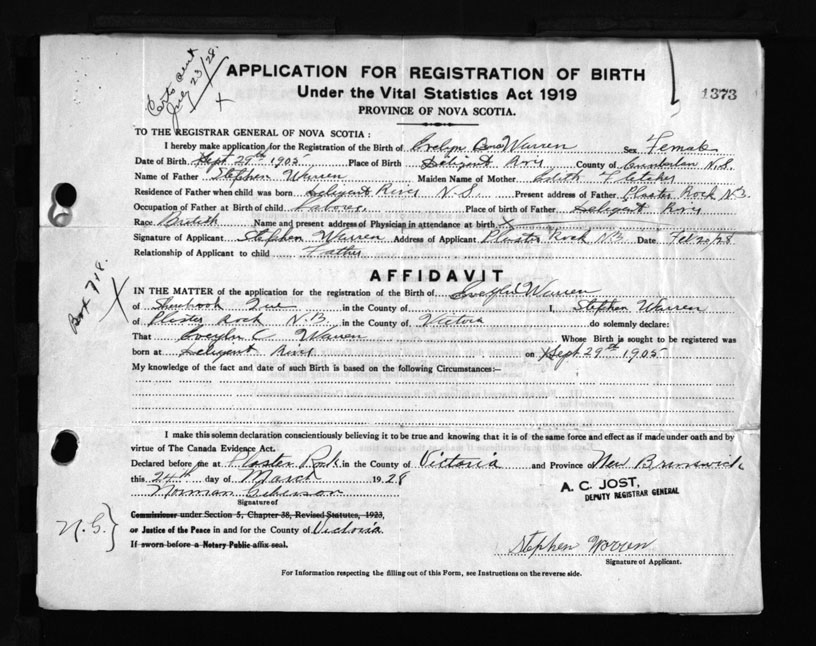 Certs sent
July 23/28
X
APPLICATION FOR REGISTRATION OF BIRTH
Under the Vital Statistics Act 1919
1373
PROVINCE OF NOVA SCOTIA.
TO THE REGISTRAR GENERAL OF NOVA SCOTIA:
I hereby make application for the Registration of the Birth of Evelyn Warren Sex Female
Date of Birth Sept 29th 1905 Place of Birth County of N.S.
Name of Father Stephen Warren Maiden Name of Mother Edith Fletcher
Residence of Father when child was born River N.S. Present address of Father Plaster Rock N.B.
Occupation of Father at Birth of child Laborer Place of birth of Father
Race British Name and present address of Physician in attendance at birth X
Signature of Applicant Stephen Warren Address of Applicant Plaster Rock N.B. Date Feb 20/28
Relationship of Applicant to child Father
AFFIDAVIT
Box 718.
X
IN THE MATTER of the application for the registration of the Birth of Warren
of Que in the County of I, Stephen Warren
of Plaster Rock N.B in the County of Victoria do solemnly declare:
That Evelyn C Warren Whose Birth is sought to be registered was
born at on Sept 29th 1905
My knowledge of the fact and date of such Birth is based on the following Circumstances:—
I make this solemn declaration conscientiously believing it to be true and knowing that it is of the same force and effect as if made under oath and by
virtue of The Canada Evidence Act.
Declared before me at Plaster Rock in the County of Victoria and Province New Brunswick
this 24th day of March 1928
A. C. JOST,
DEPUTY REGISTRAR GENERAL
Norman
Signature of
Commissioner under Section 5, Chapter 38, Revised Statutes, 1923,
N.G.}
or Justice of the Peace in and for the County of Victoria
If sworn before a Notary Public affix seal.
Stephen Warren
Signature of Applicant.
For Information respecting the filling out of this Form, see Instructions on the reverse side.